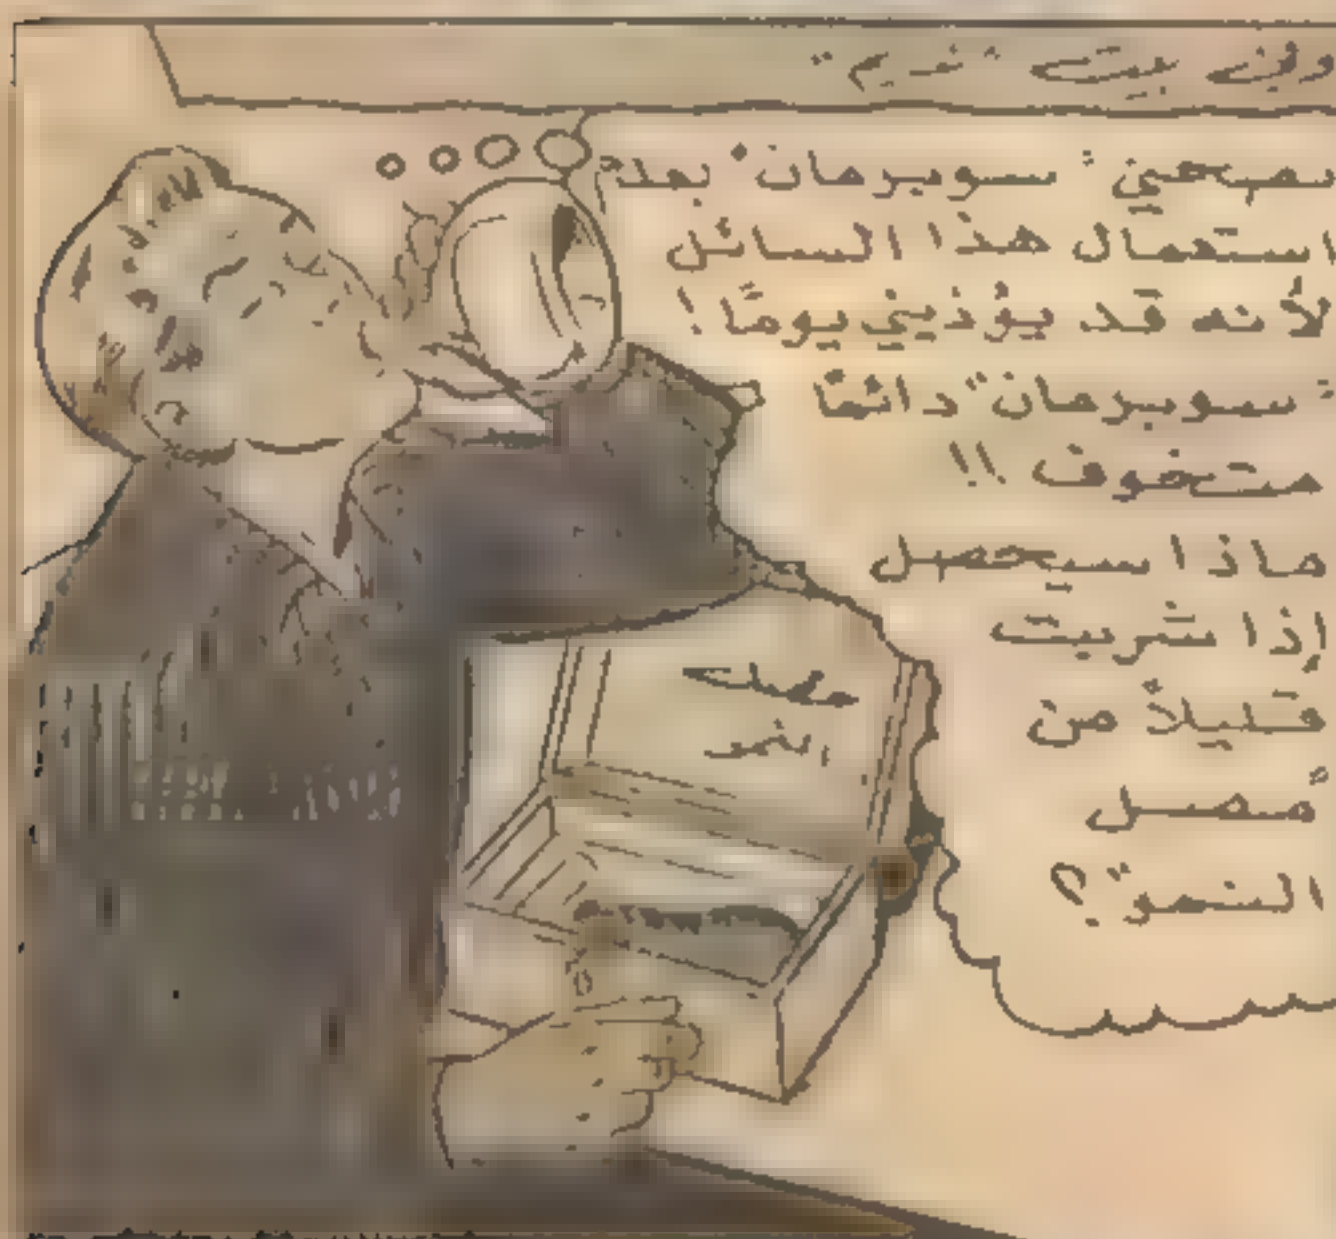 وفي بيت "نديم"
"سوبرمان" بعد
استعمال هذا السائل
لأنه قد يؤذيني يومًا !
"سوبرمان" دائمًا
متخوف !!
ماذا سيحصل
إذا شربت
قليلاً من
مصل
النمو ؟
مصل
النمو